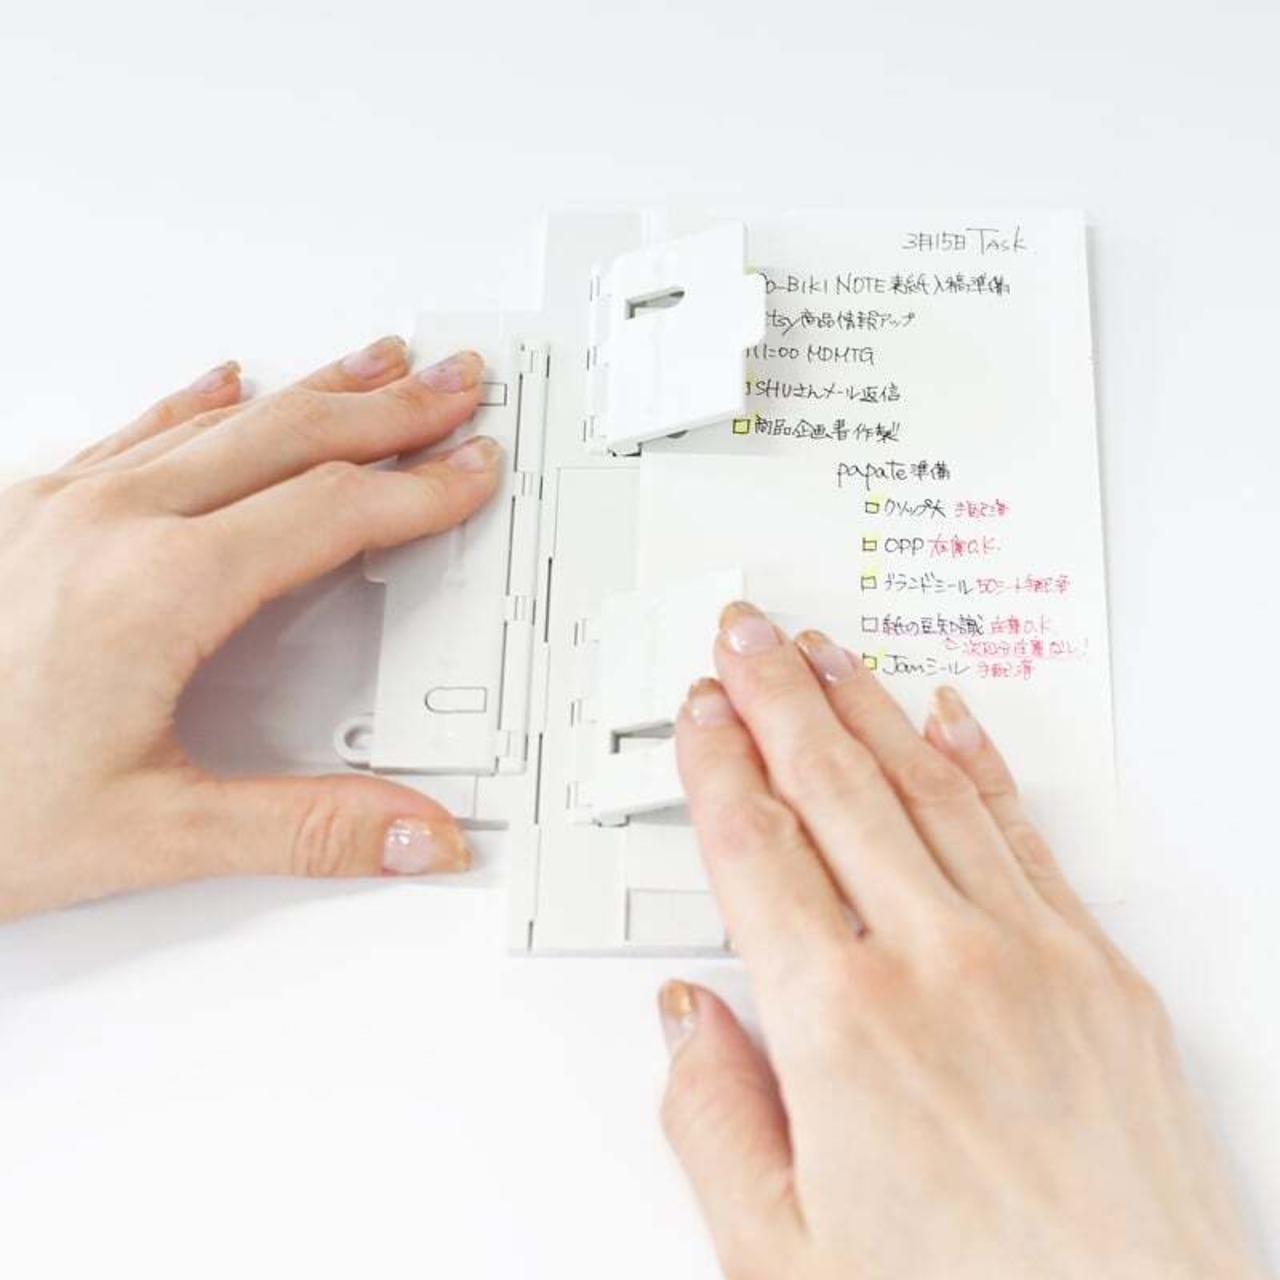 3月15日 Task
o-BIKI NOTE 表紙入稿準備
tsy商品情報アップ
11:00 MDMTG
SHUさんメール返信
商品企画書作製!!
papate準備
クリップ大 手配済
OPP 在庫O.K.
グランドミール 50シート手配済
紙の豆知識 在庫O.K.
次回分在庫なし!
Jamシール 手配済